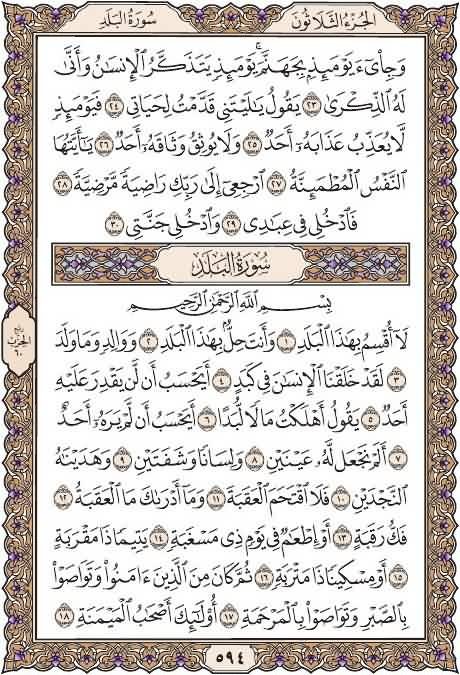 سُورَةُ البَلَدِ
الجُزْءُ الثَّلَاثُونَ
وَجِاْىٓءَ يَوْمَئِذِۭ بِجَهَنَّمَۚ يَوْمَئِذٖ يَتَذَكَّرُ ٱلْإِنسَٰنُ وَأَنَّىٰ
لَهُ ٱلذِّكْرَىٰ ٢٣ يَقُولُ يَٰلَيْتَنِى قَدَّمْتُ لِحَيَاتِى ٢٤ فَيَوْمَئِذٖ
لَّا يُعَذِّبُ عَذَابَهُۥٓ أَحَدٌ ٢٥ وَلَا يُوثِقُ وَثَاقَهُۥٓ أَحَدٌ ٢٦ يَٰٓأَيَّتُهَا
ٱلنَّفْسُ ٱلْمُطْمَئِنَّةُ ٢٧ ٱرْجِعِىٓ إِلَىٰ رَبِّكِ رَاضِيَةً مَّرْضِيَّةً ٢٨
فَٱدْخُلِى فِى عِبَٰدِى ٢٩ وَٱدْخُلِى جَنَّتِى ٣٠
سُورَةُ البَلَدِ
بِسْمِ ٱللَّهِ ٱلرَّحْمَٰنِ ٱلرَّحِيمِ
لَآ أُقْسِمُ بِهَٰذَا ٱلْبَلَدِ ١ وَأَنتَ حِلٌّۢ بِهَٰذَا ٱلْبَلَدِ ٢ وَوَالِدٍ وَمَا وَلَدَ
٣ لَقَدْ خَلَقْنَا ٱلْإِنسَٰنَ فِى كَبَدٍ ٤ أَيَحْسَبُ أَن لَّن يَقْدِرَ عَلَيْهِ
أَحَدٌ ٥ يَقُولُ أَهْلَكْتُ مَالًا لُّبَدًا ٦ أَيَحْسَبُ أَن لَّمْ يَرَهُۥٓ أَحَدٌ
٧ أَلَمْ نَجْعَل لَّهُۥ عَيْنَيْنِ ٨ وَلِسَانًا وَشَفَتَيْنِ ٩ وَهَدَيْنَٰهُ
ٱلنَّجْدَيْنِ ١٠ فَلَا ٱقْتَحَمَ ٱلْعَقَبَةَ ١١ وَمَآ أَدْرَىٰكَ مَا ٱلْعَقَبَةُ ١٢
فَكُّ رَقَبَةٍ ١٣ أَوْ إِطْعَٰمٌ فِى يَوْمٍ ذِى مَسْغَبَةٍ ١٤ يَتِيمًا ذَا مَقْرَبَةٍ
١٥ أَوْ مِسْكِينًا ذَا مَتْرَبَةٍ ١٦ ثُمَّ كَانَ مِنَ ٱلَّذِينَ ءَامَنُوا۟ وَتَوَاصَوْا۟
بِٱلصَّبْرِ وَتَوَاصَوْا۟ بِٱلْمَرْحَمَةِ ١٧ أُو۟لَٰٓئِكَ أَصْحَٰبُ ٱلْمَيْمَنَةِ ١٨
رُبْعُ
الحِزْبِ
٦٠
٥٩٤